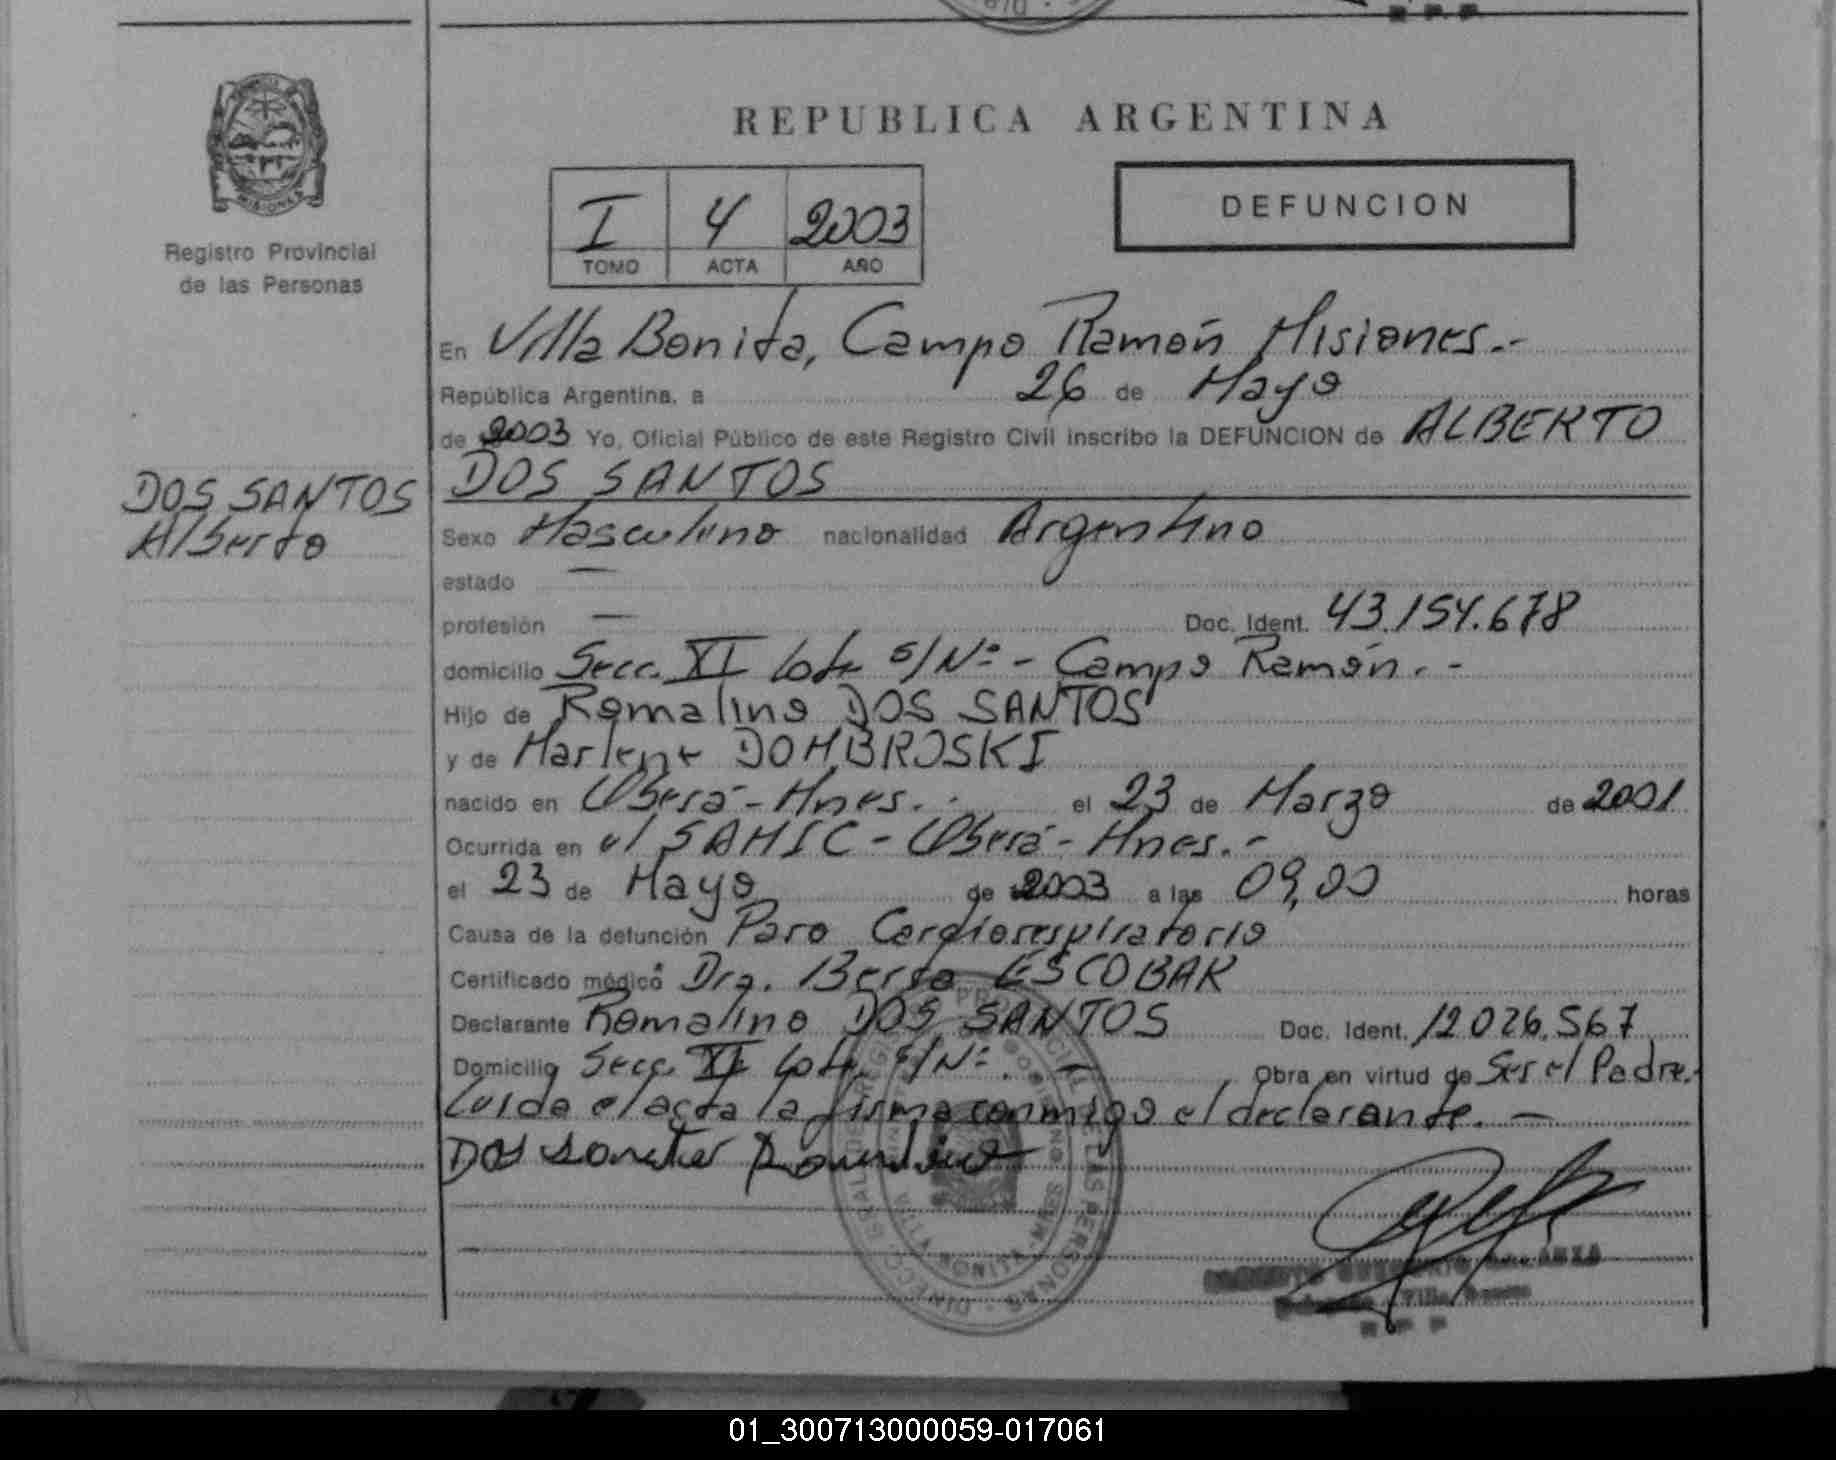 MISIONES
Registro Provincial
de las Personas
REPUBLICA ARGENTINA
I 4 2003
TOMO ACTA AÑO
DEFUNCION
En Villa Bonita, Campo Ramón Misiones.-
República Argentina, a 26 de Mayo
de 2003 Yo, Oficial Público de este Registro Civil inscribo la DEFUNCION de ALBERTO
DOS SANTOS
DOS SANTOS
Alberto
Sexo Masculino nacionalidad Argentino
estado —
profesión — Doc. Ident. 43.154.678
domicilio Secc. XI Lote S/Nº - Campo Ramón.-
Hijo de Romalino DOS SANTOS
y de Marlene DOMBROSKI
nacido en Oberá - Mnes.- el 23 de Marzo de 2001
Ocurrida en el SAMIC - Oberá - Mnes.-
el 23 de Mayo de 2003 a las 09,00 horas
Causa de la defunción Paro Cardiorespiratorio
Certificado médico Dra. Berta ESCOBAR
Declarante Romalino DOS SANTOS Doc. Ident. 12026.567
Domicilio Secc. XI Lote S/Nº. — Obra en virtud de Ser el Padre.-
Leida el acta la firma conmigo el declarante. —
Dos santos Romalino
VILLA BONITA - MNES
Villa Bonita
01_300713000059-017061